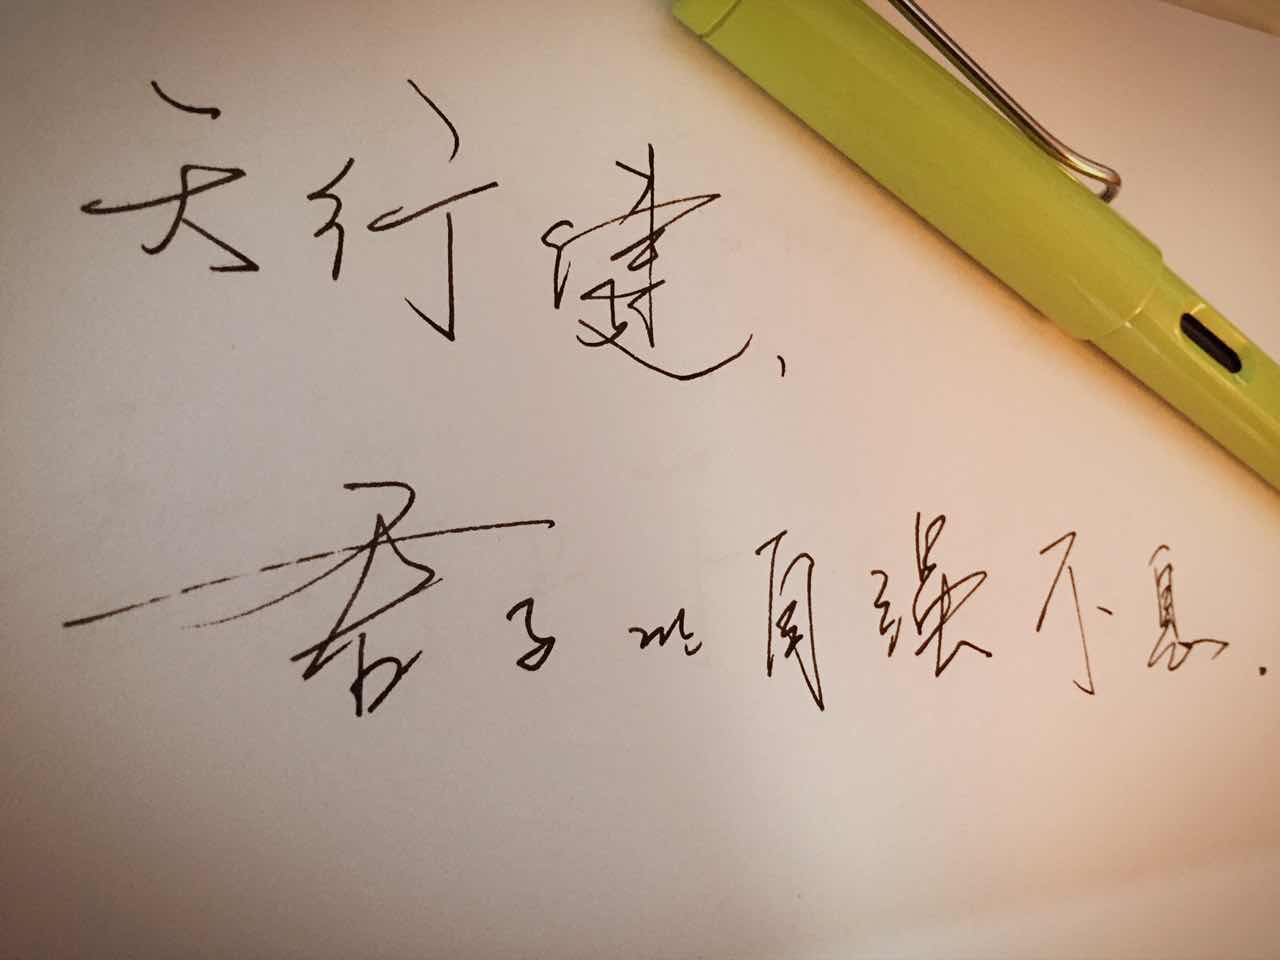 天行健，
君子以自强不息.